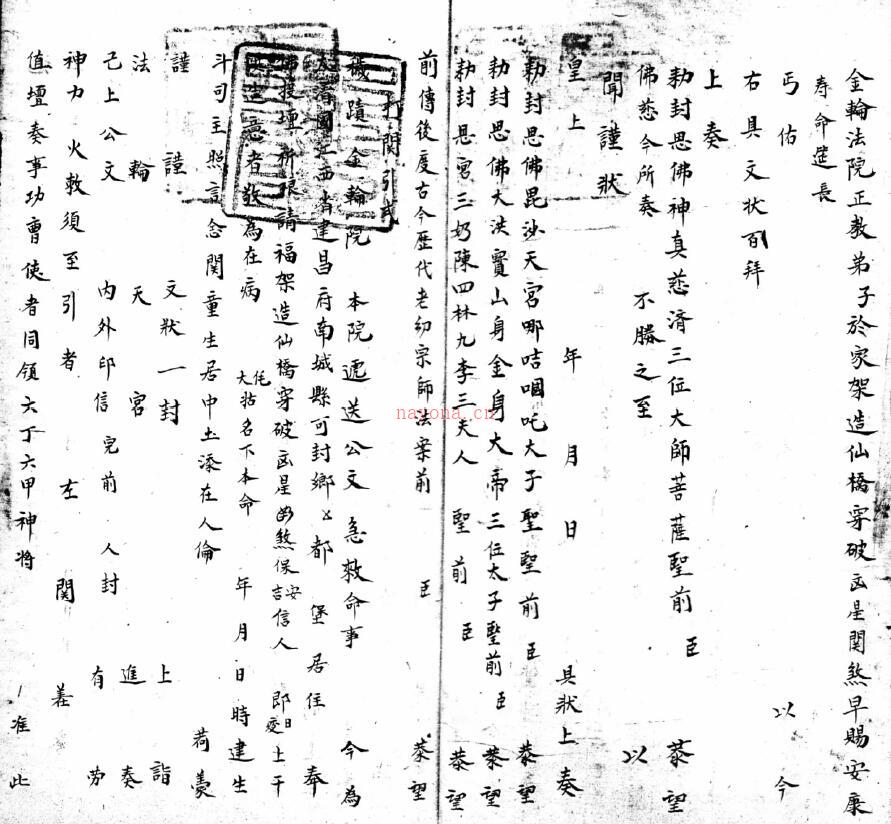 金輪法院正教弟子於家架造仙橋穿破凶星関煞早賜安康
寿命延長
丐佑 以今
右具文状百拜
上奏
勅封思佛神真慈濟三位大師菩薩聖前 臣 恭望
佛慈今所奏 不勝之至 以
聞謹狀
皇上 年 月 日 具狀上奏
勅封思佛毘沙天宮哪咭囉吒大子聖聖前 臣 恭望
勅封思佛大洪寶山身金身大帝三位太子聖前 臣 恭望
勅封思宮三奶陳四林九李三夫人 聖前 臣 恭望
前傳後度古今歷代老幼宗師法案前 臣 恭望
打関引式
穢蹟金輪院 本院遞送公文急救命事 今為
清國江西省建昌府南城縣可封鄉 都 堡居住 奉
佛 請福架造仙橋穿破凶星 煞保安吉信人 即日
為在病 名下本命 年月日時建生
斗司主照言念関童生居中土添在人倫 荷
謹謹 文狀一封 上詣
法輪 天宮 進奏
己上公文 內外印信完前人封 有劳
神力 火救須至引者 左 関
值壇奏事功曹使者同領六丁六甲神將 准此
nayona.cn